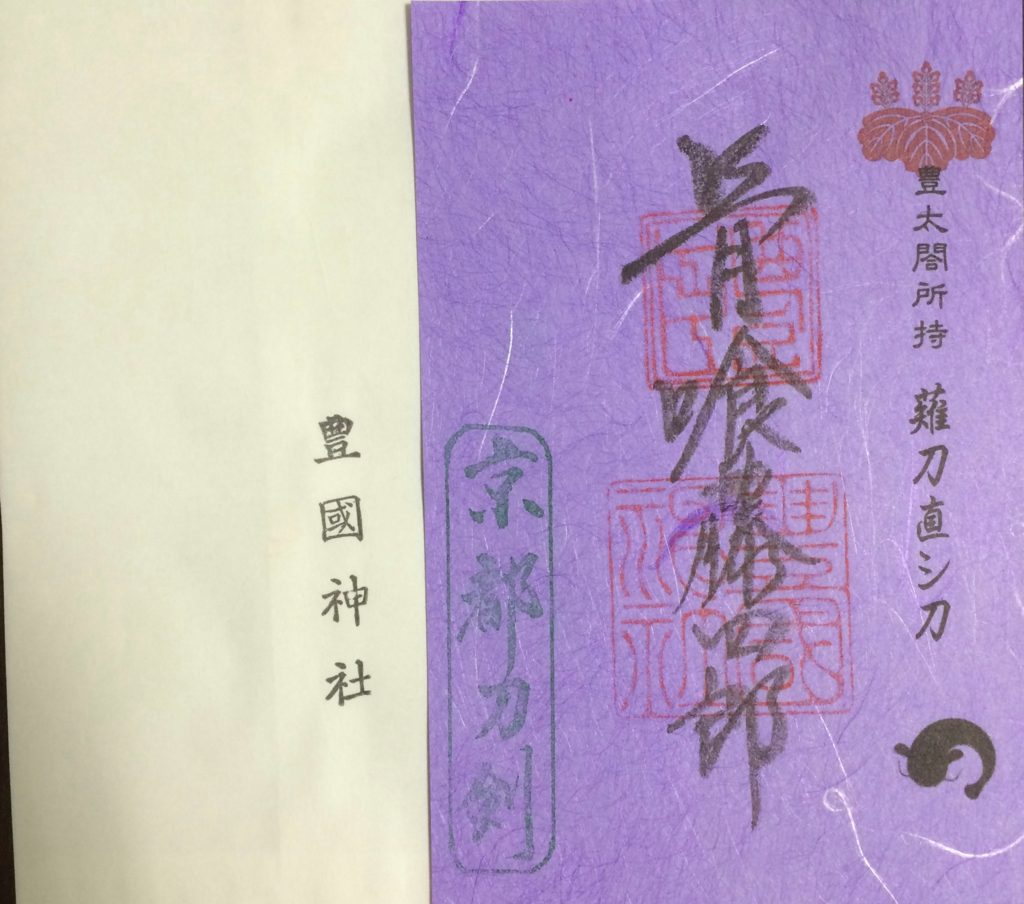 豊太閤所持 薙刀直シ刀
骨喰藤四郎
京都刀剣
豊國神社